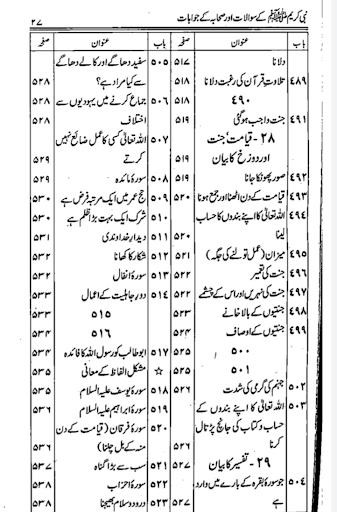 ۲۷ نبی کریم ﷺ کے سوالات اور صحابہ کے جوابات
باب عنوان صفحہ
دلانا ۵۱۷
۴۸۹ تلاوت قرآن کی رغبت دلانا ۵۱۸
۴۹۰
۴۹۱ جنت واجب ہوگئی ۵۱۹
۲۸- قیامت، جنت
اور دوزخ کا بیان ۵۱۹
۴۹۲ صور پھونکا جانا ۵۱۹
۴۹۳ قیامت کے دن اٹھنا اور جمع ہونا ۵۲۰
۴۹۴ اللہ تعالیٰ کا اپنے بندوں کا حساب
لینا ۵۲۰
۴۹۵ میزان (عمل تولنے کی جگہ) ۵۲۱
۴۹۶ جنت کی تعمیر ۵۲۲
۴۹۷ جنت کی نہریں اور اس کے چشمے ۵۲۲
۴۹۸ جنتیوں کے بالا خانے ۵۲۳
۴۹۹ جنتیوں کے اوصاف ۵۲۴
۵۰۰ ۵۲۵
۵۰۱ ۵۲۵
۵۰۲ جہنم کی گرمی کی شدت ۵۲۶
۵۰۳ اللہ تعالیٰ کا اپنے بندوں کے
حساب و کتاب کی جانچ پڑتال
کرنا
۲۹- تفسیر کا بیان ۵۲۷
۵۰۴ جو سورۂ بقرہ کے بارے میں وارد
ہے ۵۲۷
باب عنوان صفحہ
۵۰۵ سفید دھاگے اور کالے دھاگے
سے کیا مراد ہے؟ ۵۲۸
۵۰۶ جماع کرنے میں یہودیوں سے
اختلاف ۵۲۸
۵۰۷ اللہ تعالیٰ کسی کا عمل ضائع نہیں
کرتے ۵۲۹
۵۰۸ سورۂ مائدہ ۵۲۹
۵۰۹ حج عمر میں ایک مرتبہ فرض ہے ۵۳۰
۵۱۰ شرک ایک بہت بڑا ظلم ہے ۵۳۰
۵۱۱ دیدار خداوندی ۵۳۱
۵۱۲ شکار کا کھانا ۵۳۲
۵۱۳ سورۂ انفال ۵۳۲
۵۱۴ دور جاہلیت کے اعمال ۵۳۳
۵۱۵ ۵۳۳
۵۱۶ ۵۳۴
۵۱۷ ابوطالب کو رسول اللہ کا فائدہ ۵۳۴
☆ مشکل الفاظ کے معانی ۵۳۵
۵۱۸ سورۂ یوسف علیہ السلام ۵۳۵
۵۱۹ سورۂ ابراہیم علیہ السلام ۵۳۶
۵۲۰ سورۂ فرقان (قیامت کے دن
منہ کے بل چلنا) ۵۳۶
۵۲۱ سب سے بڑا گناہ ۵۳۷
۵۲۲ سورۂ احزاب ۵۳۸
۵۲۳ درود و سلام بھیجنا ۵۳۸